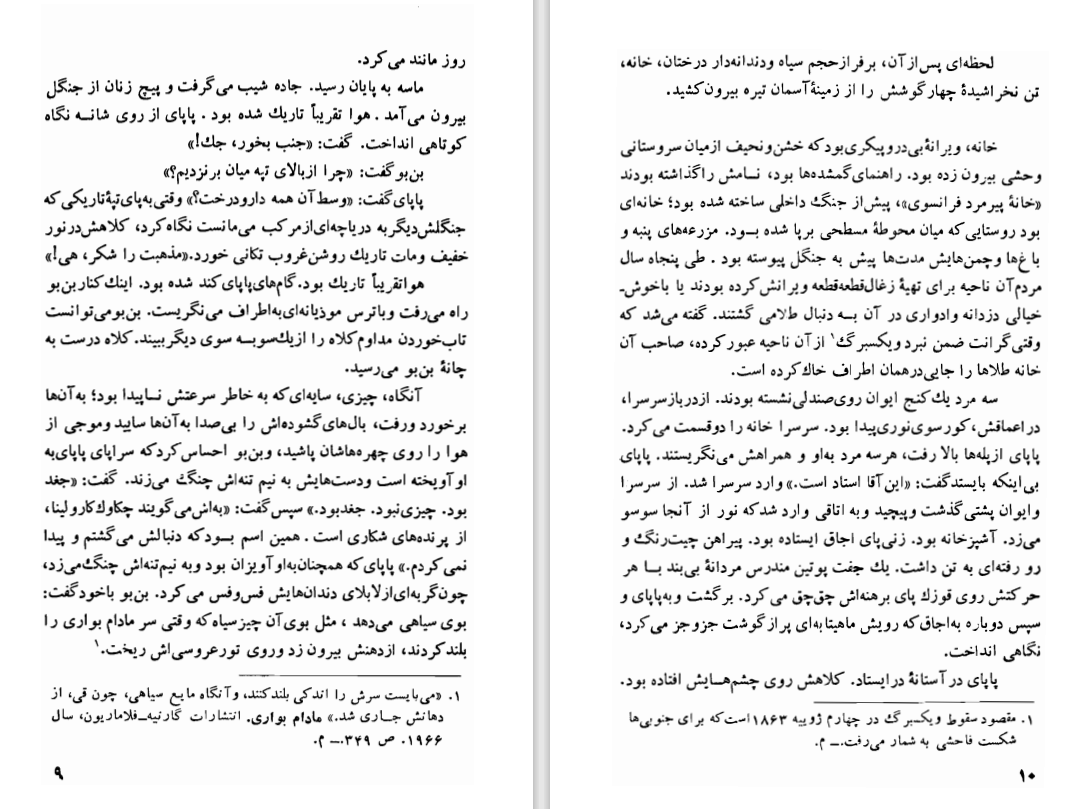 روز مانند می‌کرد.
ماسه به پایان رسید. جاده شیب می‌گرفت و پیچ زنان از جنگل
بیرون می‌آمد. هوا تقریباً تاریك شده بود. پاپای از روی شانه نگاه
کوتاهی انداخت. گفت: «جنب بخور، جك!»
بن‌بو گفت: «چرا از بالای تپه میان بر نزدیم؟»
پاپای گفت: «وسط آن همه دارودرخت؟» وقتی به پای تپهٔ تاریکی که
جنگلش دیگر به دریاچه‌ای از مرکب می‌مانست نگاه کرد، کلاهش در نور
خفیف و مات تاریك روشن غروب تکانی خورد. «مذهبت را شکر، هی!»
هوا تقریباً تاریك بود. گام‌های پاپای کند شده بود. اینك کنار بن‌بو
راه می‌رفت و با ترس موذیانه‌ای به اطراف می‌نگریست. بن‌بو می‌توانست
تاب خوردن مداوم کلاه را از یك‌سو بـه سوی دیگر ببیند. کلاه درست به
چانهٔ بن‌بو می‌رسید.
آنگاه، چیزی، سایه‌ای که به خاطر سرعتش نـاپیدا بود؛ به آن‌ها
برخورد و رفت، بال‌های گشوده‌اش را بی‌صدا به آن‌ها سایید و موجی از
هوا را روی چهره‌هاشان پاشید، و بن‌بو احساس کرد که سراپای پاپای به
او آویخته است و دست‌هایش به نیم تنه‌اش چنگ می‌زند. گفت: «جغد
بود. چیزی نبود. جغد بود.» سپس گفت: «به‌اش می‌گویند چکاوك کارولینا،
از پرنده‌های شکاری است. همین اسم بـود که دنبالش می‌گشتم و پیدا
نمی‌کردم.» پاپای که همچنان به او آویزان بود و به نیم‌تنه‌اش چنگ می‌زد،
چون گربه‌ای از لابلای دندان‌هایش فس‌وفس می‌کرد. بن‌بو با خود گفت:
بوی سیاهی می‌دهد، مثل بوی آن چیز سیاه که وقتی سر مادام بواری را
بلند کردند، از دهنش بیرون زد و روی تور عروسی‌اش ریخت.۱
۱. «می‌بایست سرش را اندکی بلند کنند، و آنگاه مایع سیاهی، چون قی، از
دهانش جـاری شد.» مادام بواری. انتشارات گارنیه‌ـ‌فلاماریون، سال
۱۹۶۶. ص ۳۴۹.ـ م.
۹
لحظه‌ای پس از آن، بر فراز حجم سیاه و دندانه‌دار درختان، خانه،
تن نخراشیدهٔ چهارگوشش را از زمینهٔ آسمان تیره بیرون کشید.
خانه، ویرانهٔ بی‌در و پیکری بود که خشن و نحیف از میان سروستانی
وحشی بیرون زده بود. راهنمای گمشده‌ها بود، نـامش را گذاشته بودند
«خانهٔ پیرمرد فرانسوی»، پیش از جنگ داخلی ساخته شده بود؛ خانه‌ای
بود روستایی که میان محوطهٔ مسطحی برپا شده بـود. مزرعه‌های پنبه و
باغ‌ها و چمن‌هایش مدت‌ها پیش به جنگل پیوسته بود. طی پنجاه سال
مردم آن ناحیه برای تهیهٔ زغال قطعه‌قطعه ویرانش کرده بودند یا با خوش‌ـ
خیالی دزدانه و ادواری در آن بـه دنبال طلا می گشتند. گفته می‌شد که
وقتی گرانت ضمن نبرد ویکسبرگ۱ از آن ناحیه عبور کرده، صاحب آن
خانه طلاها را جایی در همان اطراف خاك کرده است.
سه مرد یك کنج ایوان روی صندلی نشسته بودند. از در باز سرسرا،
در اعماقش، کورسوی نوری پیدا بود. سرسرا خانه را دو قسمت می‌کرد.
پاپای از پله‌ها بالا رفت، هر سه مرد به او و همراهش می‌نگریستند. پاپای
بی‌اینکه بایستد گفت: «این آقا استاد است.» وارد سرسرا شد. از سرسرا
و ایوان پشتی گذشت و پیچید و به اتاقی وارد شد که نور از آنجا سوسو
می‌زد. آشپزخانه بود. زنی پای اجاق ایستاده بود. پیراهن چیت رنگ و
رو رفته‌ای به تن داشت. یك جفت پوتین مندرس مردانهٔ بی‌بند بـا هر
حرکتش روی قوزك پای برهنه‌اش چق‌چق می‌کرد. برگشت و به پاپای و
سپس دوباره به اجاق که رویش ماهیتابه‌ای پر از گوشت جزوجز می‌کرد،
نگاهی انداخت.
پاپای در آستانهٔ در ایستاد. کلاهش روی چشم‌هـایش افتاده بود.
۱. مقصود سقوط ویکسبرگ در چهارم ژوییه ۱۸۶۳ است که برای جنوبی‌ها
شکست فاحشی به شمار می‌رفت.ـ م.
۱۰